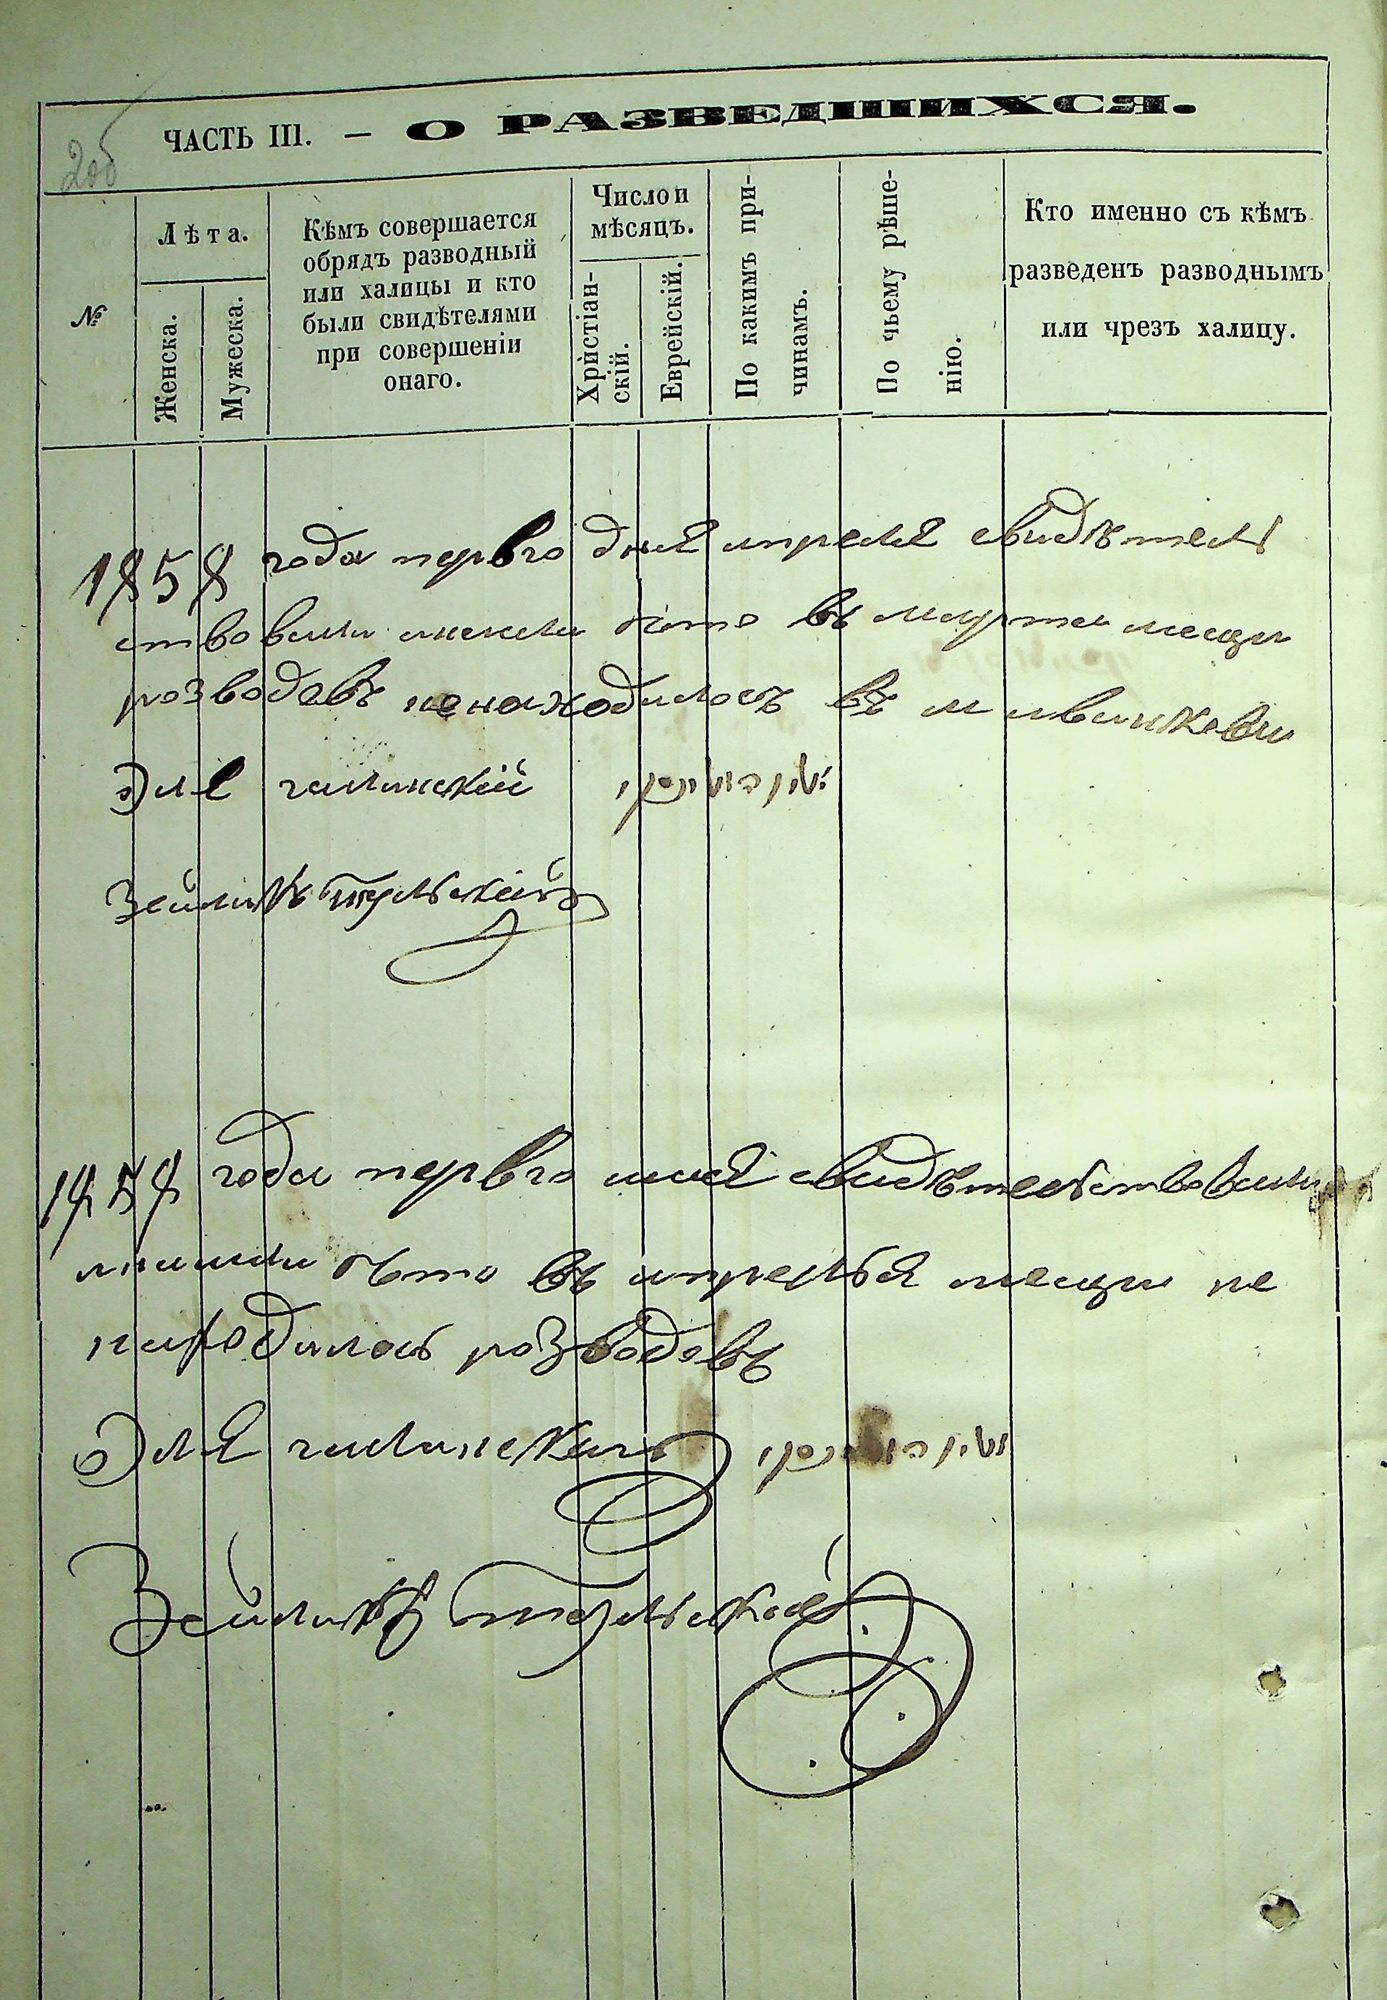 206
ЧАСТЬ III. — О РАЗВЕДШИХСЯ.
№
Лѣта.
Женска.
Мужеска.
Кѣмъ совершается
обрядъ разводный
или халицы и кто
были свидѣтелями
при совершеніи
онаго.
Число и
мѣсяцъ.
Христіан-
скій.
Еврейскій.
По какимъ при-
чинамъ.
По чьему рѣше-
нію.
Кто именно съ кѣмъ
разведенъ разводнымъ
или чрезъ халицу.
1858 года первго дня апреля свидѣтель
ствовали что въ марта месцы
розводовъ ненаходилось въ
Эле
Зейликъ
1858 года первго мая свидѣтельствовали
что въ апреля месцы не
находилось розводовъ
Эля
Зейликъ